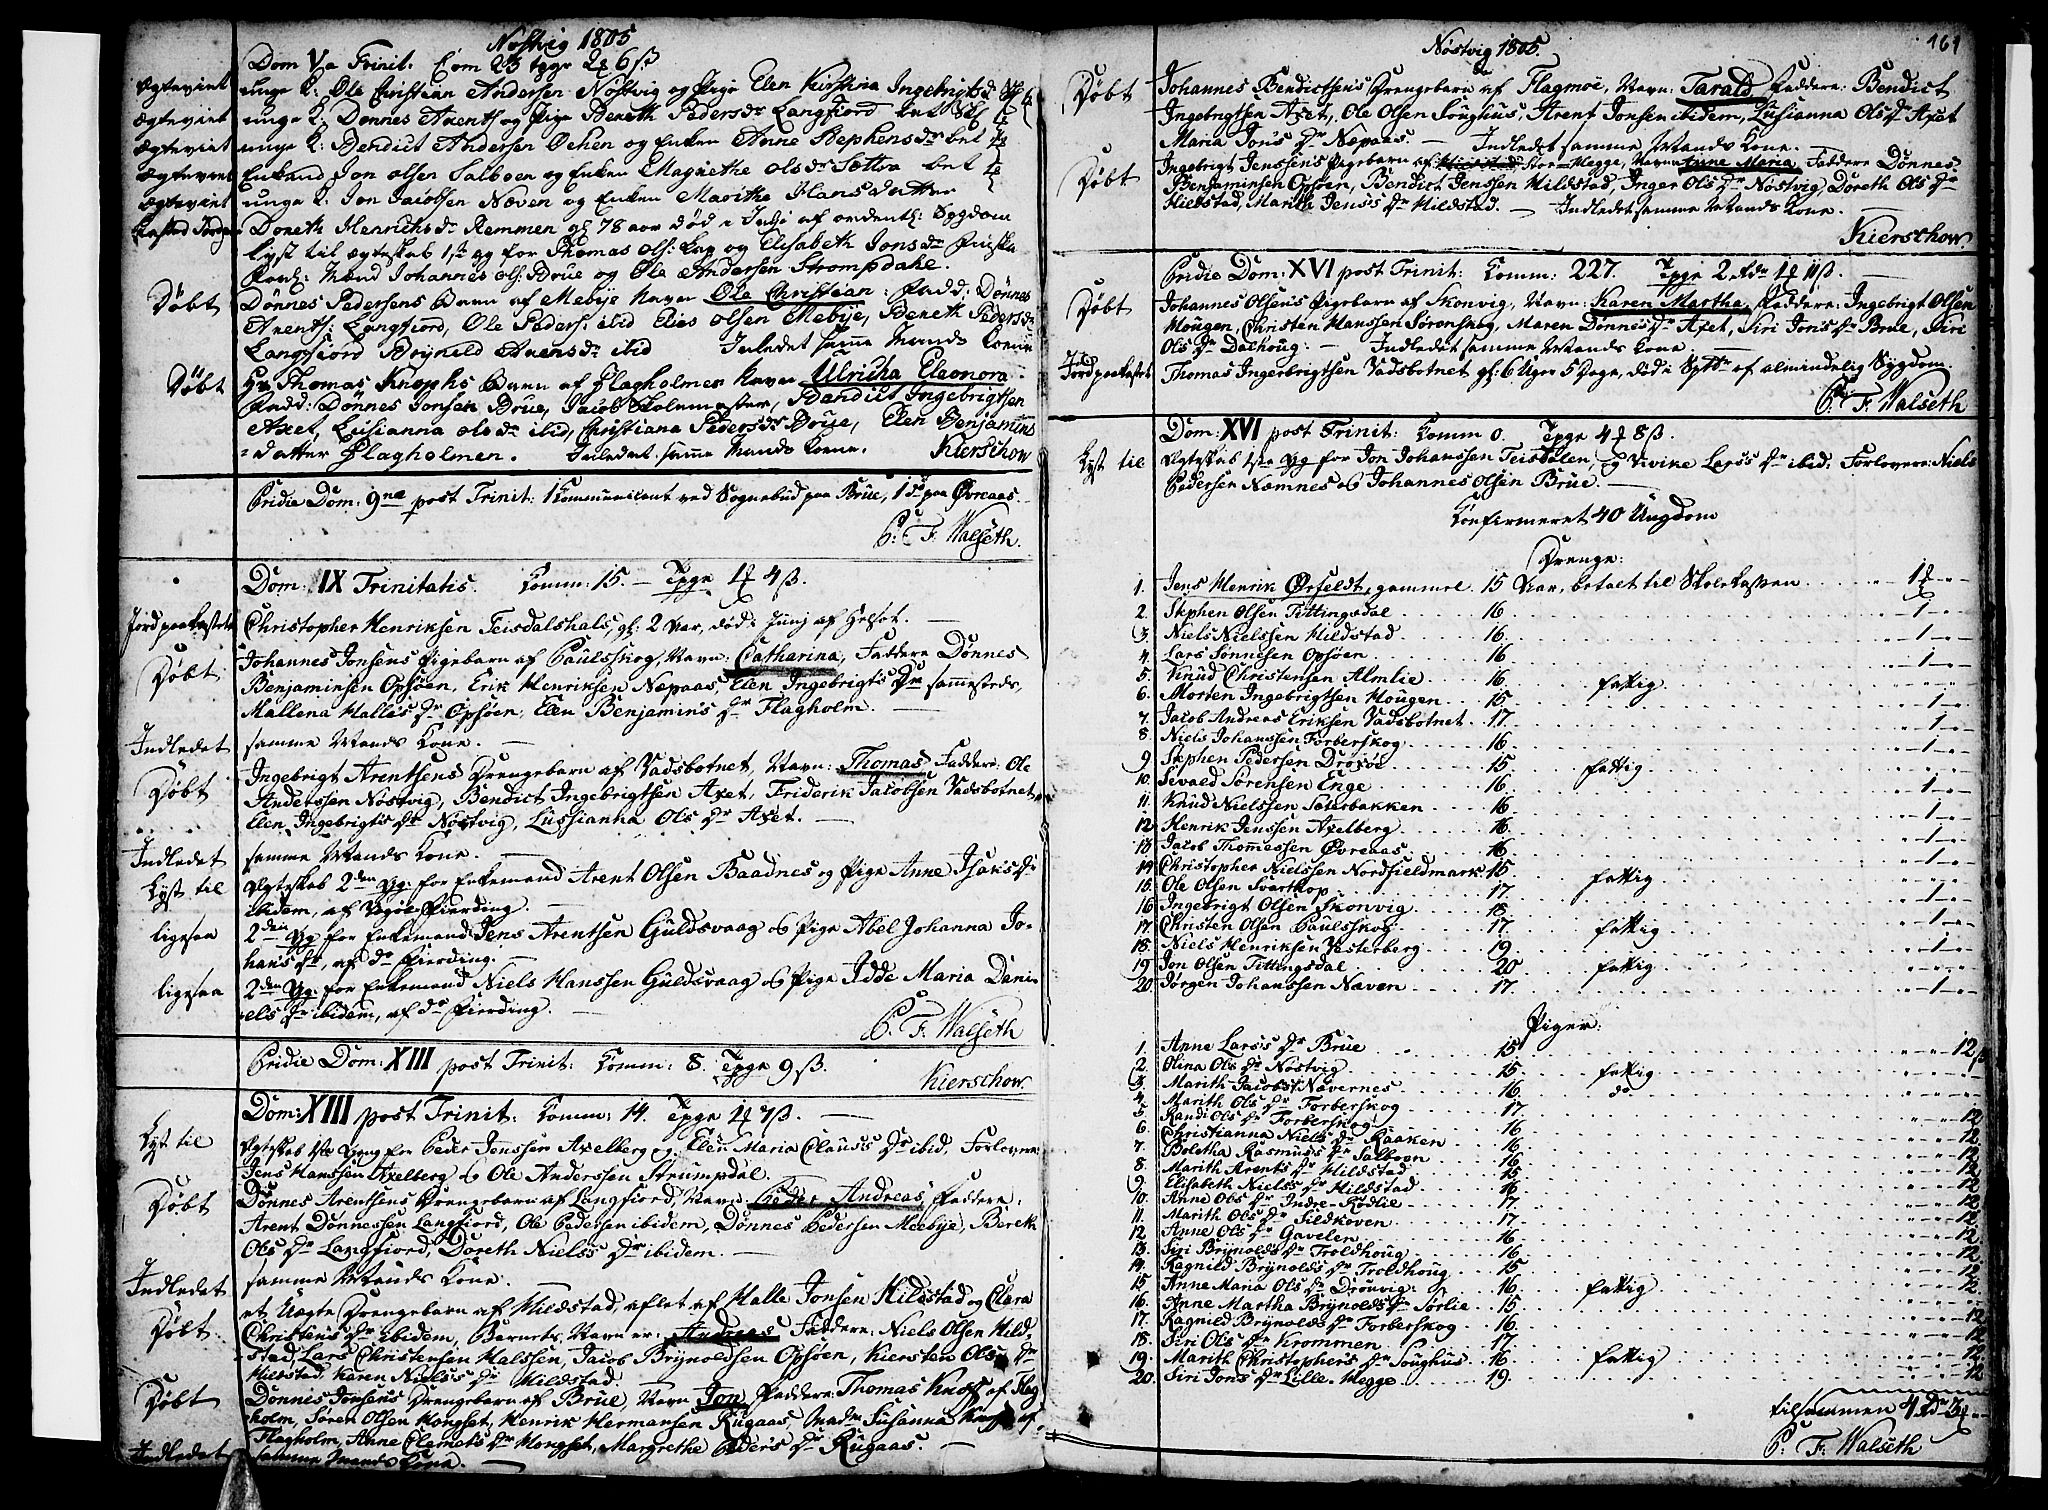 Nøstvig 1805
Dom V a Trinit: Com 23 tgge 2 6 ß
Ægteviet unge K: Ole Christian Andersen Nøstvig og Pige Elen Kirstina Ingebrigtsd
Ægteviet unge K: Dønnes Arents og Pige Bereth Pedersdr Langfiord
Ægteviet unge K: Bendict Andersen Øehen og Enken Anne Stephensdr bet
Ægteviet Enkemd Jon Olsen Salboen og Enken Magrethe Olsdr Sættra bet
Ægteviet unge K: Jon Jacobsen Næven og Enken Marithe Hansdatter
Kasted Jord paa Doreth Henrichsdr Remmen gl 78 aar død i Julj af ordentl: Sygdom
Lyst til ægteskab 1ste gg for Thomas Ols: Lap og Elisabeth Jonsdr
Forl: Mænd Johannes Ols: Brue og Ole Andersen Strompdahl.
Døbt Dønnes Pedersens Barn af Mebye Navn Ole Christian: Fadd: Dønnes
Arents: Langfiord, Ole Peders: ibid Elies Olsen Mebye, Bereth Pedersdr
Langfiord Brynild Arensdr ibid Inledet samme Mands Kone
Døbt Hr Thomas Knophs Barn af Flagholmen Navn Ulricha Eleonora
Fadd: Dønnes Jonsen Brue, Jacob Skolemester, Bendict Ingebrigtsen
Axet, Lusianna Olsdr ibid, Christiana Pedersdr Brue, Elen Benjamins
=datter Flagholmen. Inledet samme Mands Kone. Kierschow
Pridie Dom: 9na post Trinit: 1 Kommunicant ved Sognebud paa Brue, 1 dr paa Øvreaas.
P: F. Walseth.
Dom: IX Trinitatis. Komm: 15. – Tpge 1 4 ß.
Jord paakastet Christopher Henriksen Teisdalshals, gl: 2 Aar, død i Junj af Helsot.
Døbt Johannes Jonsens Pigebarn af Paulsskog, Navn: Catharina, Faddere Dønnes
Benjaminsen Opsøen, Erik Henriksen Næpaas, Elen Ingebrigts Dr sammesteds,
Mallena Halles Dr Opsøen, Elen Benjamins Dr Flagholm.
Indledet samme Mands Kone.
Døbt Ingebrigt Arentsens Drengebarn af Vadsbotnet, Navn: Thomas Faddere: Ole
Anderssen Nøstvig, Bendict Ingebrigtsen Axet, Friderik Jacobsen Vadsbotnet,
Elen Ingebrigts Dr Nøstvig, Lussianna Ols Dr Axet.
Indledet samme Mands Kone.
Lyst til Ægteskab 2den Gg: for Enkemand Arent Olsen Baadnes og Pige Anne Isaks Dr
ibidem, af Fierding.
ligesaa 2den Gg for Enkemand Jens Arentsen Guldsvaag og Pige Abel Johanna Jo-
hans Dr, af do Fierding.
ligesaa 2den Gg: for Enkemand Niels Hanssen Guldsvaag og Pige Idde Maria Dani-
els Dr ibidem, af do Fierding.
P. F. Walseth
Pridie Dom: XIII post Trinit: Komm: 8. Tpge 9 ß.
Kierschow.
Dom: XIII post Trinit: Komm: 14. Tpge 1 7 ß.
Lyst til Ægteskab 1ste Gang for Peder Jenssen Axelberg og Elen Maria Clauss Dr ibid, Forlovere
Jens Hanssen Axelberg og Ole Anderssen Strumpdal.
Døbt Dønnes Arentsens Drengebarn af Langfiord, Navn Peder Andreas, Faddere:
Arent Dønnessen Langfiord, Ole Pedersen ibidem, Dønnes Pedersen Meebye, Bereth
Ols Dr Langfiord, Doreth Nielss Dr ibidem.
Indledet samme Mands Kone.
Døbt et Uægte Drengebarn af Hildstad, aflet af Halle Jonsen Hildstad og Clara
Christens Dr ibidem, Barnets Navn er: Andreas Faddere: Niels Olsen Hild-
stad, Lars Christensen Halssen, Jacob Brynoldsen Opsøen, Kiersten Ols Dr
Hildstad, Karen Niels's Dr Hildstad
Døbt Dønnes Jonsens Drengebarn af Brue, Navn Jon, Faddere: Thomas Knoff af Flag
holm, Søren Olsen Hongset, Henrik Hermansen Rugaas, Madm Susanna Knoff af
Flagholm, Anne Clemets Dr Hongset, Margrethe Peders Dr Rugaas.
Indledet samme Mands Kone.
Nøstvig 1805.
161
Døbt Johannes Bendictsens Drengebarn af Flagmoe, Navn: Tarald Faddere: Bendict
Ingebrigtsen Axet, Ole Olsen Soughus, Arent Jonsen ibidem, Lusianna Ols Dr Axet
Maria Jons Dr Næpaas. – Indledet samme Mands Kone.
Døbt Ingebrigt Jenssens Pigebarn af Store-Hegge, Navn Anne Maria Faddere Dønnes
Benjaminsen Opsøen, Bendict Jenssen Hildstad, Inger Ols Dr Nøstvig, Doreth Ols Dr
Hildstad, Marith Jens's Dr Hildstad. – Indledet samme Mands Kone.
Kierschow
Pridie Dom: XVI post Trinit: Komm: 227. Tpge 2 rdr 1 11 ß.
Døbt Johannes Olsens Pigebarn af Skonvig, Navn: Karen Martha, Faddere: Ingebrigt Olsen
Hougen, Christen Hanssen Sørenskog, Maren Dønnes Dr Axet, Siri Jons Dr Brue, Siri
Ols Dr Dalhoug: – Indledet samme Mands Kone.
Jord paakastet Thomas Ingebrigtsen Vadsbotnet gl: 6 Uger 5 Dage, død i Sptbr af almindelig Sygdom.
P: F. Walseth
Dom: XVI post Trinit: Komm 0. Tpge 4 8 ß.
Lyst til Ægteskab 1ste Gg for Jon Johanssen Teisdalen, og Vivike Larss Dr ibid: Forlovere: Niels
Pedersen Næmnes og Johannes Olsen Brue.
Konfirmeret 40 Ungdom
Drenge:
1. Jens Henrik Ørfeldt, gammel 15 Aar, betalt til Skolekassen 1
2. Stephen Olsen Tittingsdal 16 1
3. Niels Nielssen Hildstad 16. 1
4. Lars Sonnesen Opsøen 16. 1
5. Knud Christensen Almlie 16. fattig
6. Morten Ingebrigtsen Hougen 15 1
7. Jacob Andreas Eriksen Vadsbotnet 17. 1
8. Niels Johanssen Forberskog 16. 1
9. Stephen Pedersen Drøsøe 15 fattig
10. Sevald Sørensen Enge 16. 1
11. Knud Nielssen Sæterbakken 16 1
12. Henrik Jenssen Axelberg 16. 1
13. Jacob Thomessen Øvreaas 16 1
14. Christopher Nielssen Nordfieldmark 15. fattig
15. Ole Olsen Svartkop 17 1
16. Ingebrigt Olsen Skonvig 18 1
17. Christen Olsen Paulsskog 17. fattig
18. Niels Henriksen Vesterberg 19. 1
19. Jon Olsen Tittingsdal 20 fattig
20. Jørgen Johanssen Næven 17. 1
Piger:
1. Anne Lars's Dr Brue 15 12 ß
2. Olina Ols Dr Nøstvig 15 fattig
3. Marith Jacobs Dr Nævernes 16. do
4. Marith Ols Dr Forberskog 17. 12
5. Randi Ols Dr Forberskog 16. 12
6. Christianna Niels Dr Raaken 16 12
7. Boletha Rasmuss Dr Salboen 16 12
8. Marith Arents Dr Hildstad 15 12
9. Elisabeth Nielss Dr Hildstad 16 12
10. Anne Ols Dr Indre-Rødlie 17. 12
11. Marith Ols Dr Sildkoven 17. 12
12. Anne Ols Dr Gavelen 16 12
13. Siri Brynolds Dr Troldhoug 16 12
14. Ragnild Brynolds Dr Troldhoug 15 12
15. Anne Maria Ols Dr Drouvig 16 fattig
16. Anne Martha Brynolds Dr Sørlie 15 12
17. Ragnild Brynolds Dr Forberskog 16. 12
18. Siri Ols Dr Krommen 17. 12
19. Marith Christophers Dr Soughus 16 fattig
20. Siri Jons Dr Lille-Hegge 19. 12
tilsammen 4 Rdr 3
P: F. Walseth